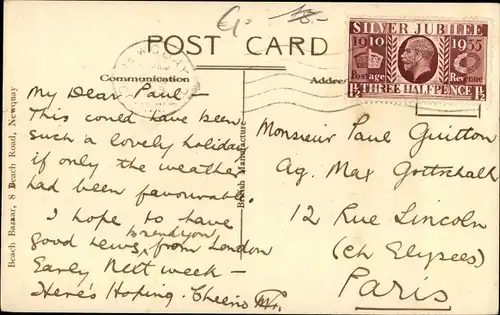 POST CARD
Communication
Address
SILVER JUBILEE
1910 1935
Postage Revenue
1½ THREE HALFPENCE 1½
Beach Bazaar, 8 Beach Road, Newquay
British Manufacture
My Dear Paul –
This could have been
such a lovely holiday
if only the weather
had been favourable.
I hope to have
send you
good news from London
Early next week –
Here's Hoping. Cheerio
Monsieur Paul Guitton
Ag. Max Gottschalk
12 Rue Lincoln
(Ch Elysees)
Paris